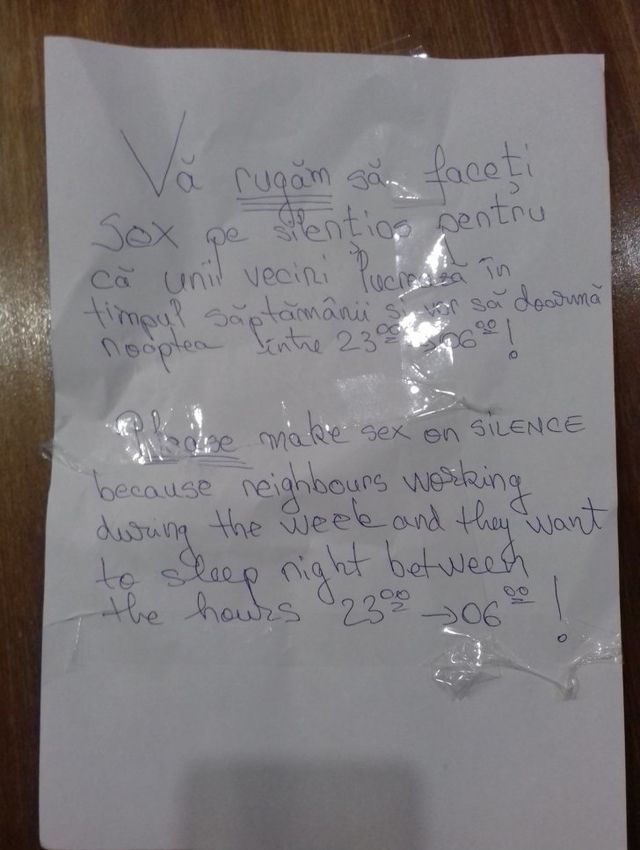 Vă rugăm să faceți
sex pe silențios pentru
că unii vecini lucrează în
timpul săptămânii și vor să doarmă
noaptea între 23⁰⁰ → 06⁰⁰!
Please make sex on SILENCE
because neighbours working
during the week and they want
to sleep night between
the hours 23⁰⁰ → 06⁰⁰!